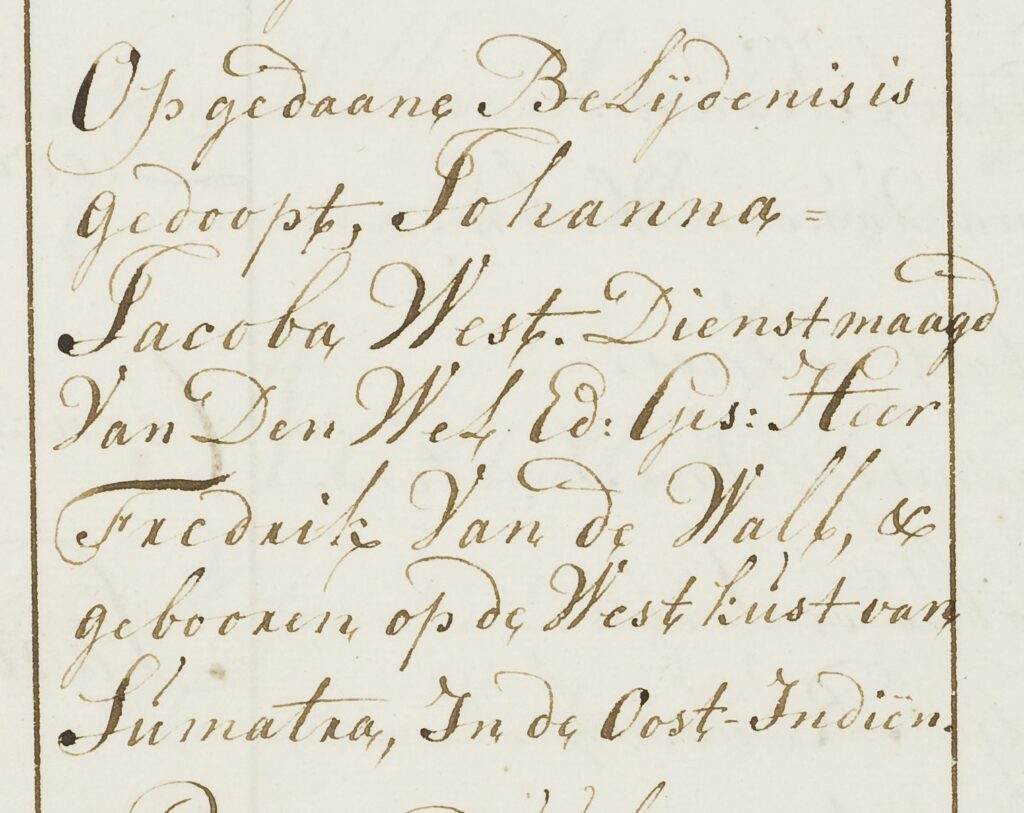 Op gedaane Belijdenis is
gedoopt, Johanna =
Jacoba West. Dienstmaagd
Van Den Wel Ed: Ges: Heer
Fredrik Van de Wall, &
gebooren op de Westkust van
Sumatra, In de Oost-Indiën.